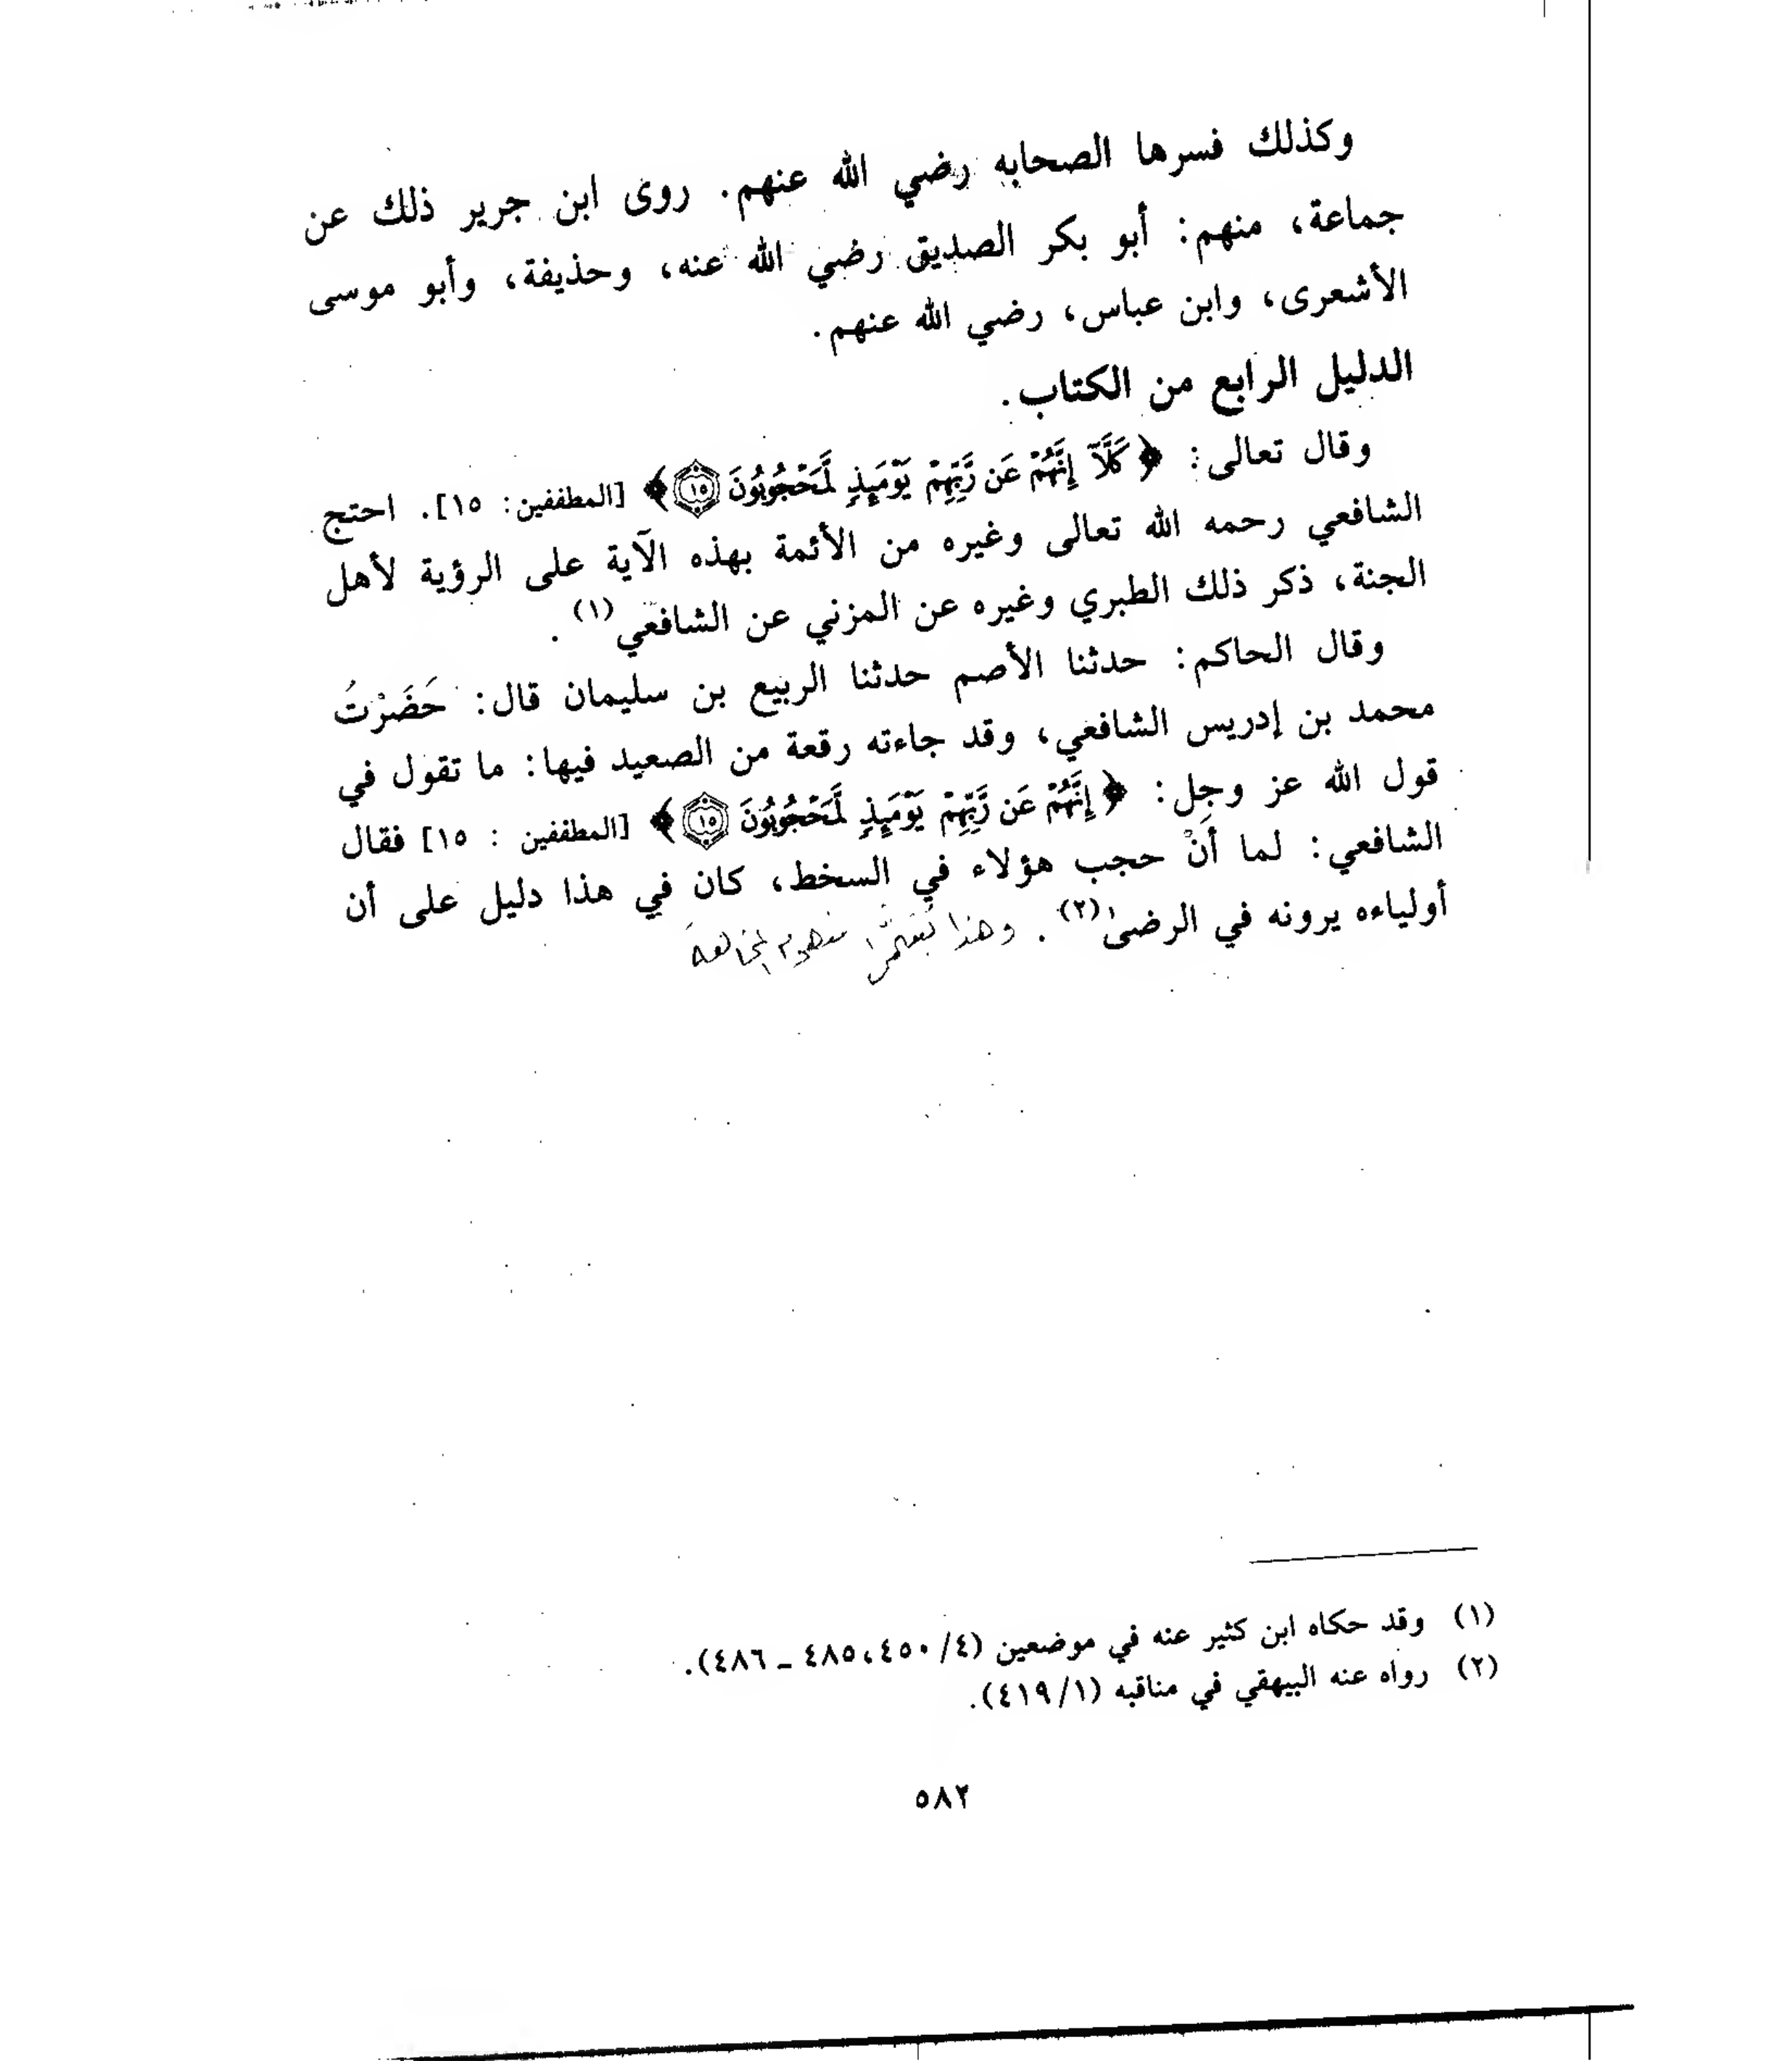 وكذلك فسرها الصحابه رضي الله عنهم. روى ابن جرير ذلك عن
جماعة، منهم: أبو بكر الصديق رضي الله عنه، وحذيفة، وأبو موسى
الأشعرى، وابن عباس، رضي الله عنهم.
الدليل الرابع من الكتاب.
وقال تعالى: ﴿كَلَّآ إِنَّهُمْ عَن رَّبِّهِمْ يَوْمَئِذٍ لَّمَحْجُوبُونَ ١٥﴾ [المطففين: ١٥]. احتج
الشافعي رحمه الله تعالى وغيره من الأئمة بهذه الآية على الرؤية لأهل
الجنة، ذكر ذلك الطبري وغيره عن المزني عن الشافعي(١).
وقال الحاكم: حدثنا الأصم حدثنا الربيع بن سليمان قال: حَضَرْتُ
محمد بن إدريس الشافعي، وقد جاءته رقعة من الصعيد فيها: ما تقول في
قول الله عز وجل: ﴿إِنَّهُمْ عَن رَّبِّهِمْ يَوْمَئِذٍ لَّمَحْجُوبُونَ ١٥﴾ [المطففين : ١٥] فقال
الشافعي: لما أنْ حجب هؤلاء في السخط، كان في هذا دليل على أن
أولياءه يرونه في الرضى(٢). وهذا مفهوم المخالفة
(١) وقد حكاه ابن كثير عنه في موضعين (٤/ ٤٥٠، ٤٨٥ ـ ٤٨٦).
(٢) رواه عنه البيهقي في مناقبه (١/ ٤١٩).
٥٨٢